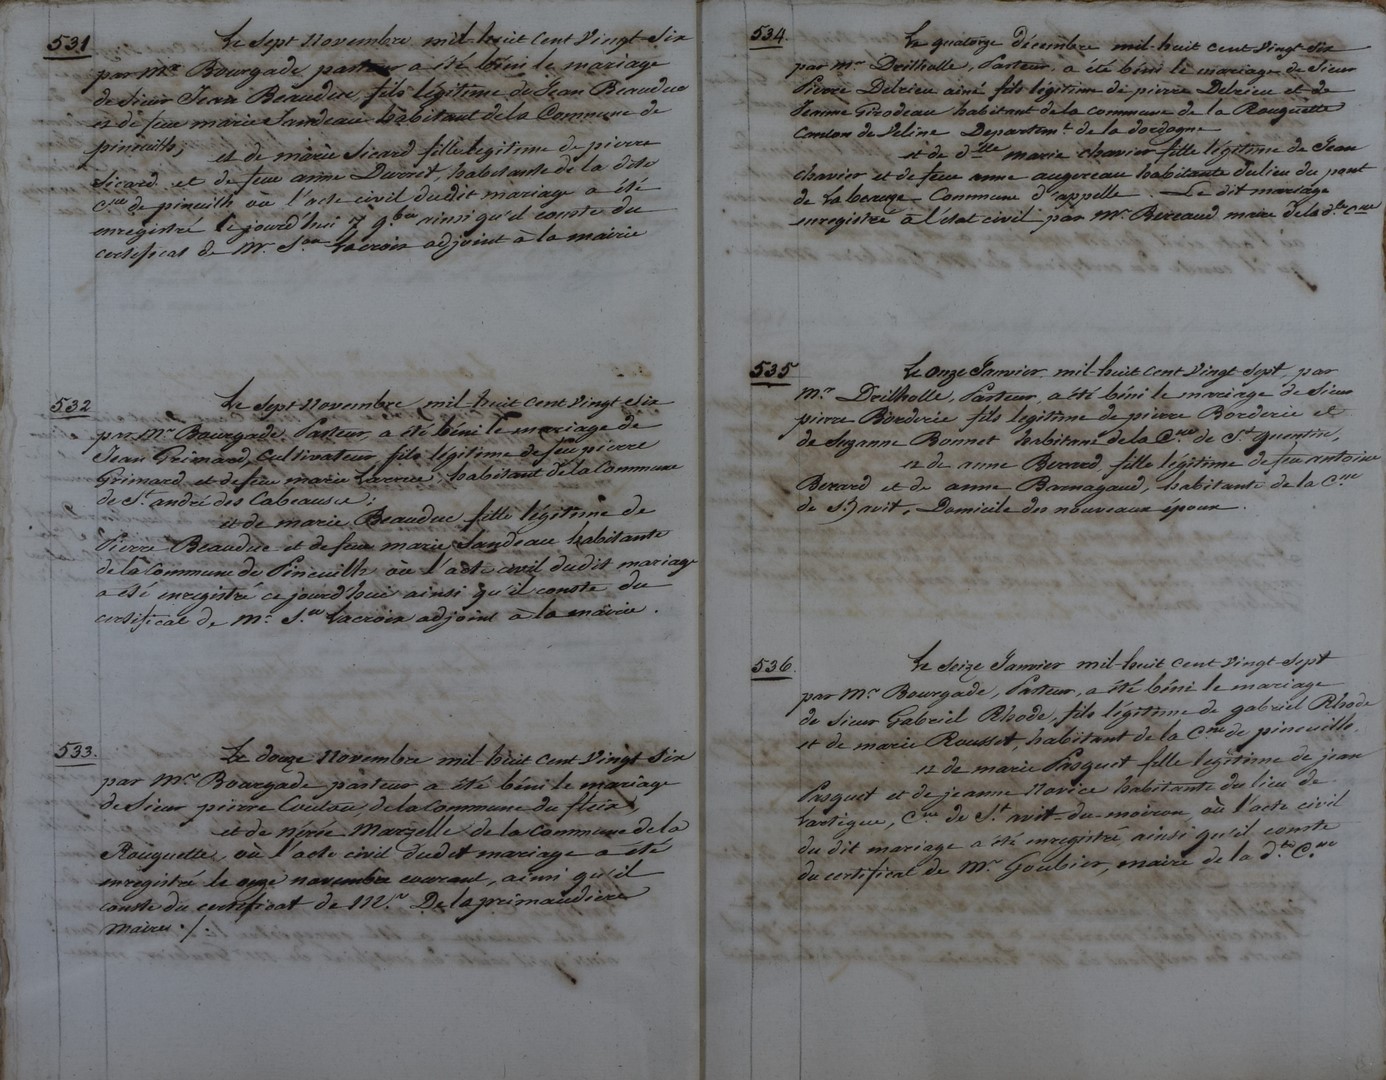 531
Le Sept Novembre mil-huit Cent Vingt-Six
par mr Bourgade pasteur a été béni le mariage
de Sieur Jean Beauduc, fils légitime de Jean Beauduc
et de feue marie Sandeau habitant de la Commune de
pineuilh;
et de marie Sicard fille légitime de pierre
Sicard et de feue anne Durret, habitante de la dite
Cne de pineuilh où l'acte civil du dit mariage a été
enregistré le jourd'hui 7 9bre ainsi qu'il conste du
certificat de Mr. Sne Lacroix adjoint à la mairie
532
Le Sept Novembre mil-huit Cent Vingt Six
par Mr Bourgade, Pasteur, a été béni le mariage de
Jean Grimard, Cultivateur, fils légitime de feu pierre
Grimard et de feue marie Larrue, habitant de la Commune
de St. andré des Cabeausse;
et de marie Beauduc fille légitime de
Pierre Beauduc et de feue marie Sandeau habitante
de la Commune de Pineuilh où l'acte civil du dit mariage
a été enregistré ce jourd'hui ainsi qu'il conste du
certificat de mr. Sne Lacroix adjoint à la mairie.
533.
Le douze Novembre mil-huit Cent Vingt Six
par Mr Bourgade pasteur a été béni le mariage
de Sieur pierre Couleau, de la Commune du fleix
et de nérée Marzelle de la Commune de la
Rouquette, où l'acte civil du dit mariage a été
enregistré le onze novembre courant, ainsi qu'il
conste du certificat de Mr. De la primaudiere
maire ./.
534.
Le quatorze décembre mil-huit cent vingt Six
par mr Drilholle, Pasteur, a été béni le mariage de Sieur
Pierre Delrieu ainé fils légitime de pierre Delrieu et de
Jeanne Girodeau habitant de la commune de la Rouquette
Canton de Veline Departemt. de la dordogne
et de dlle marie chavier fille légitime de Jean
chavier et de feue anne augereau habitante du lieu du pont
de la beauze Commune d'appelle Le dit mariage
enregistré à l'état civil par Mr. Bereaud maire de la dte Cne
535
Le Onze Janvier mil-huit Cent Vingt Sept, par
mr Drilholle, Pasteur, a été béni le mariage de Sieur
pierre Borderie fils légitime de pierre Borderie et
de Suzanne Bonnet habitant de la Cne de St. quentin,
et de anne Berard fille légitime de feu antoine
Berard et de anne Barnagaud, habitante de la Cne
de St. avit. Domicile des nouveaux époux.
536.
Le Seize Janvier mil-huit Cent Vingt-Sept
par Mr Bourgade, Pasteur, a été béni le mariage
de Sieur Gabriel Rhode, fils légitime de gabriel Rhode
et de marie Rousset, habitant de la Cne de pineuilh.
et de marie Pasquet fille légitime de jean
Pasquet et de jeanne Novice habitante du lieu de
Lartigue, Cne de St. avit-du-moiron, où l'acte civil
du dit mariage a été enregistré ainsi qu'il conste
du certificat de Mr Goubier, maire de la dte Cne